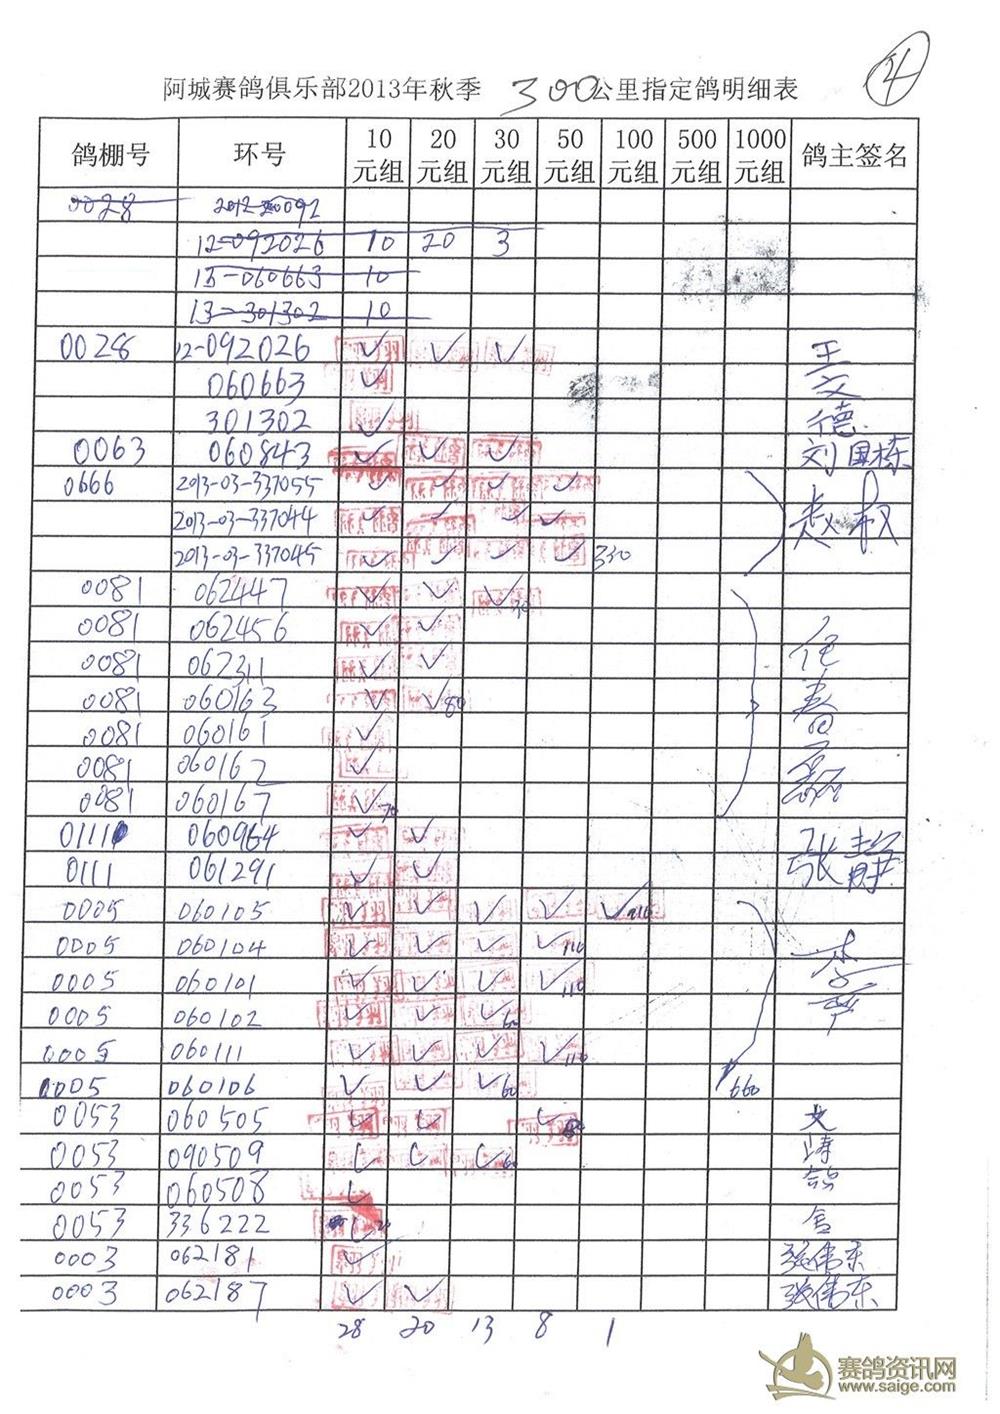 4
阿城赛鸽俱乐部2013年秋季 300公里指定鸽明细表
鸽棚号 环号 10元组 20元组 30元组 50元组 100元组 500元组 1000元组 鸽主签名
0028
12-092026 10 20 3
13-060663 10
13-301302 10
0028 12-092026 ✓ ✓ ✓ 王
060663 ✓ 文
301302 ✓ 德
0063 060843 ✓ ✓ ✓ 刘国栋
0666 2013-03-337055 ✓ ✓ ✓ ✓ 赵
2013-03-337044 ✓ ✓ ✓ ✓
2013-03-337045 ✓ ✓ ✓ ✓ 330
0081 062447 ✓ ✓ ✓ 30
0081 062456 ✓ ✓ 任
0081 062311 ✓ ✓
0081 060163 ✓ ✓ 80 春
0081 060161 ✓
0081 060162 ✓ 磊
0081 060167 ✓ 70
0111 060964 ✓ ✓ 张静
0111 061291 ✓ ✓
0005 060105 ✓ ✓ ✓ ✓ ✓ 210
0005 060104 ✓ ✓ ✓ ✓ 110 李
0005 060101 ✓ ✓ ✓ ✓ 110
0005 060102 ✓ ✓ ✓ 60
0005 060111 ✓ ✓ ✓ ✓ 110
0005 060106 ✓ ✓ ✓ 60 660
0053 060505 ✓ ✓ ✓
0053 090509 ✓ ✓ ✓ 60 涛
0053 060508 ✓ 鸽
0053 336222 ✓ 舍
0003 062181 ✓ 张伟东
0003 062187 ✓ ✓ 张伟东
28 20 13 8 1
赛鸽资讯网
www.saige.com